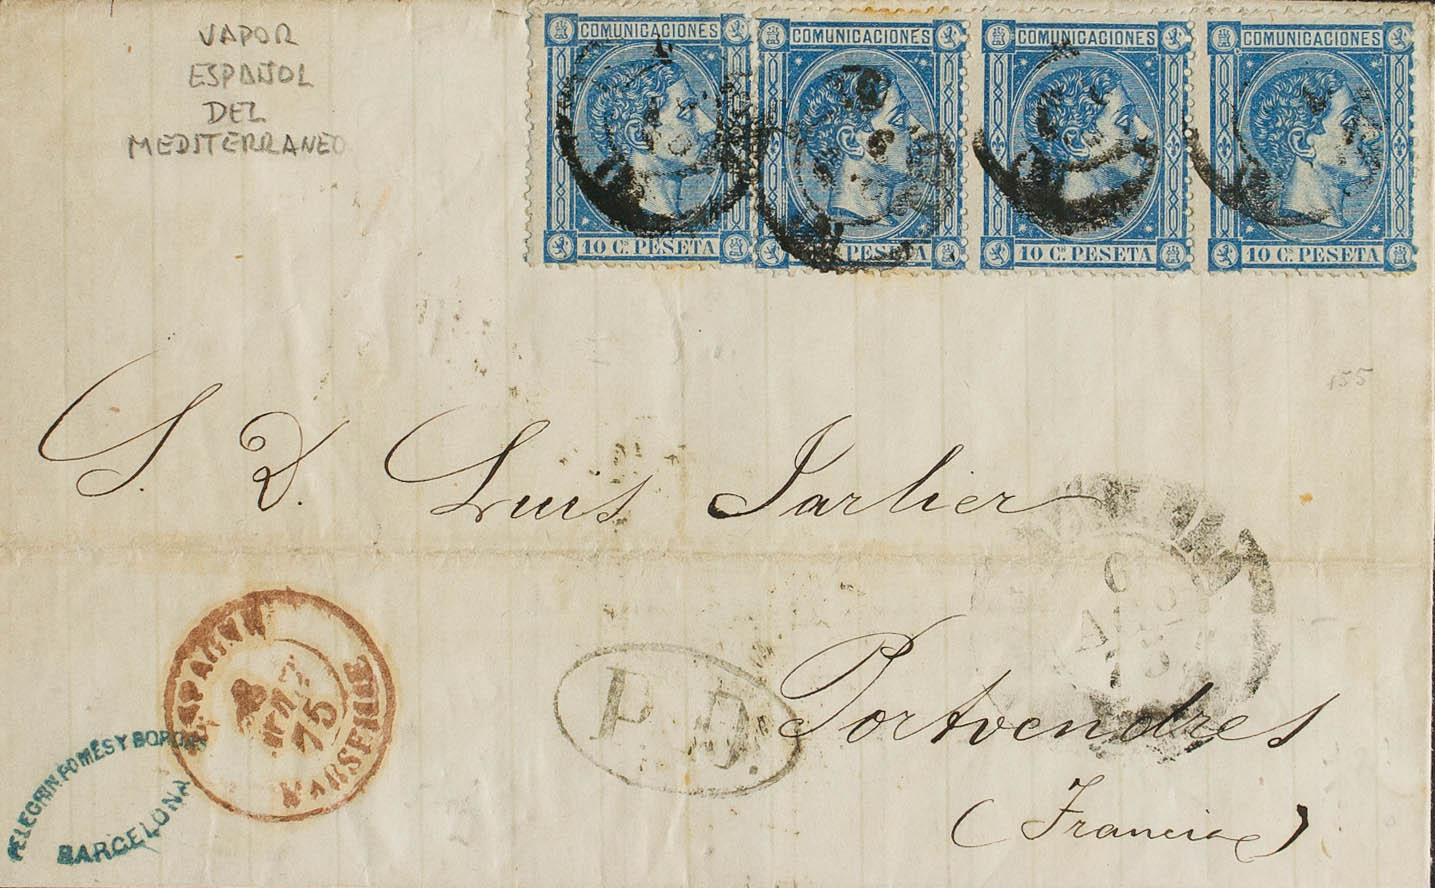 VAPOR
ESPAÑOL
DEL
MEDITERRANEO
COMUNICACIONES COMUNICACIONES COMUNICACIONES COMUNICACIONES
10 C. PESETA 10 C. PESETA 10 C. PESETA 10 C. PESETA
155
S. D. Luis Jarlier
Portvendres
(Francia)
P.D.
ESPAGNE
75
MARSEILLE
6
75
PELEGRIN, POMÉS Y
BARCELONA